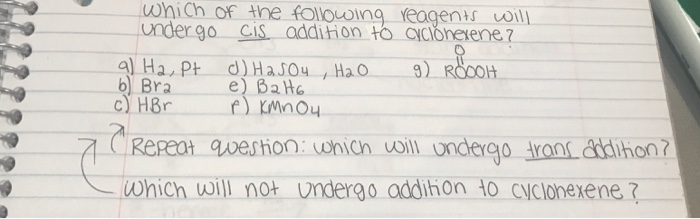 which of the following reagents will
undergo cis addition to cyclohexene?
a) H2, Pt d) H2SO4, H2O g) RCOOOH
b) Br2 e) B2H6
c) HBr f) KMnO4
Repeat question: which will undergo trans addition?
which will not undergo addition to cyclohexene?